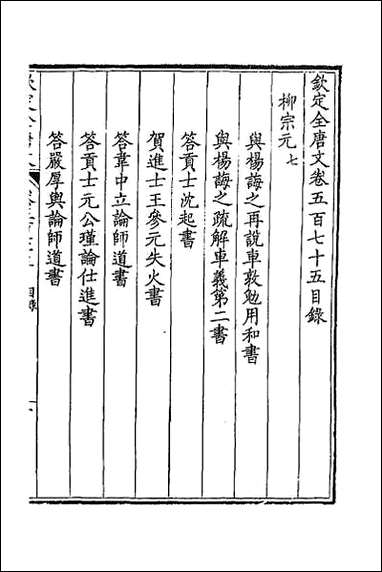 欽定全唐文卷五百七十五目錄
柳宗元七
與楊誨之再說車敦勉用和書
與楊誨之疏解車義第二書
答貢士沈起書
賀進士王參元失火書
答韋中立論師道書
答貢士元公瑾論仕進書
答嚴厚輿論師道書
目錄